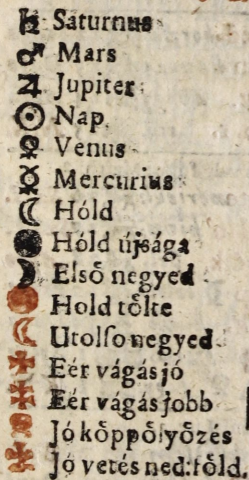 ♄ Saturnus
♂ Mars
♃ Jupiter
☉ Nap
♀ Venus
☿ Mercurius
☾ Hóld
Hóld újsága
Elsô negyed
Hold tôlte
Utolſo negyed
Eér vágás jó
Eér vágás jobb
Jó kôppôlyôzés
Jó vetés ned: fôld.